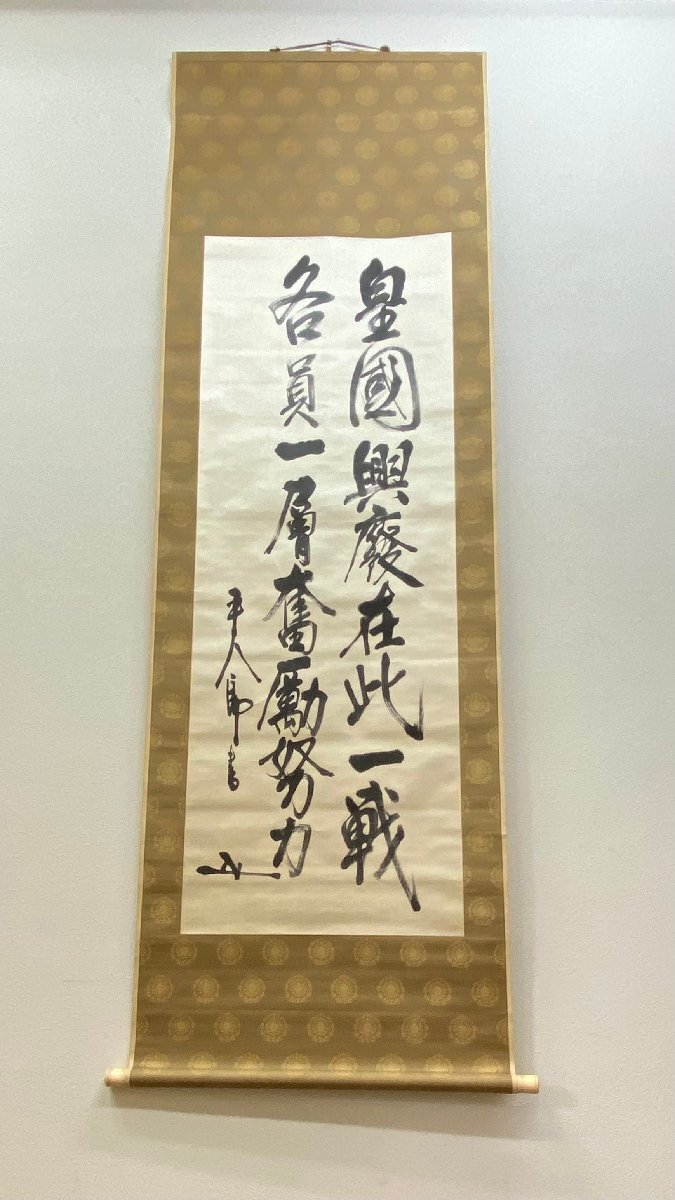 皇國興廢在此一戦
各員一層奮励努力
平八郎書